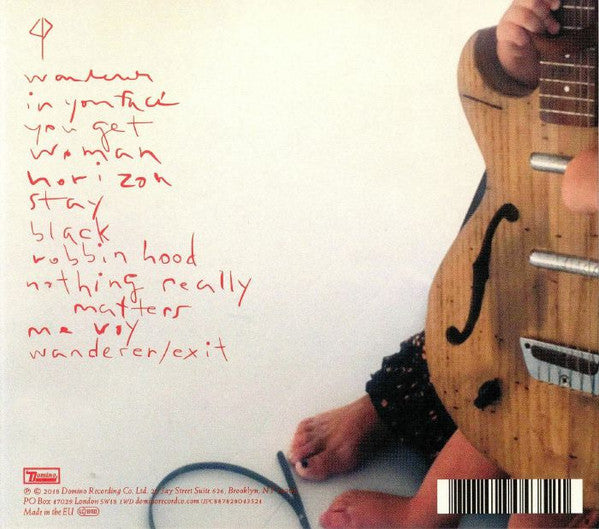 wanderer
in your face
you get
woman
horizon
stay
black
robbin hood
nothing really
matters
me voy
wanderer/exit
Domino
℗ © 2018 Domino Recording Co. Ltd. Jay Street Suite 626, Brooklyn, N
PO Box 47029 London SW18 1WD dominorecordco.com UPC 887828043521
Made in the EU